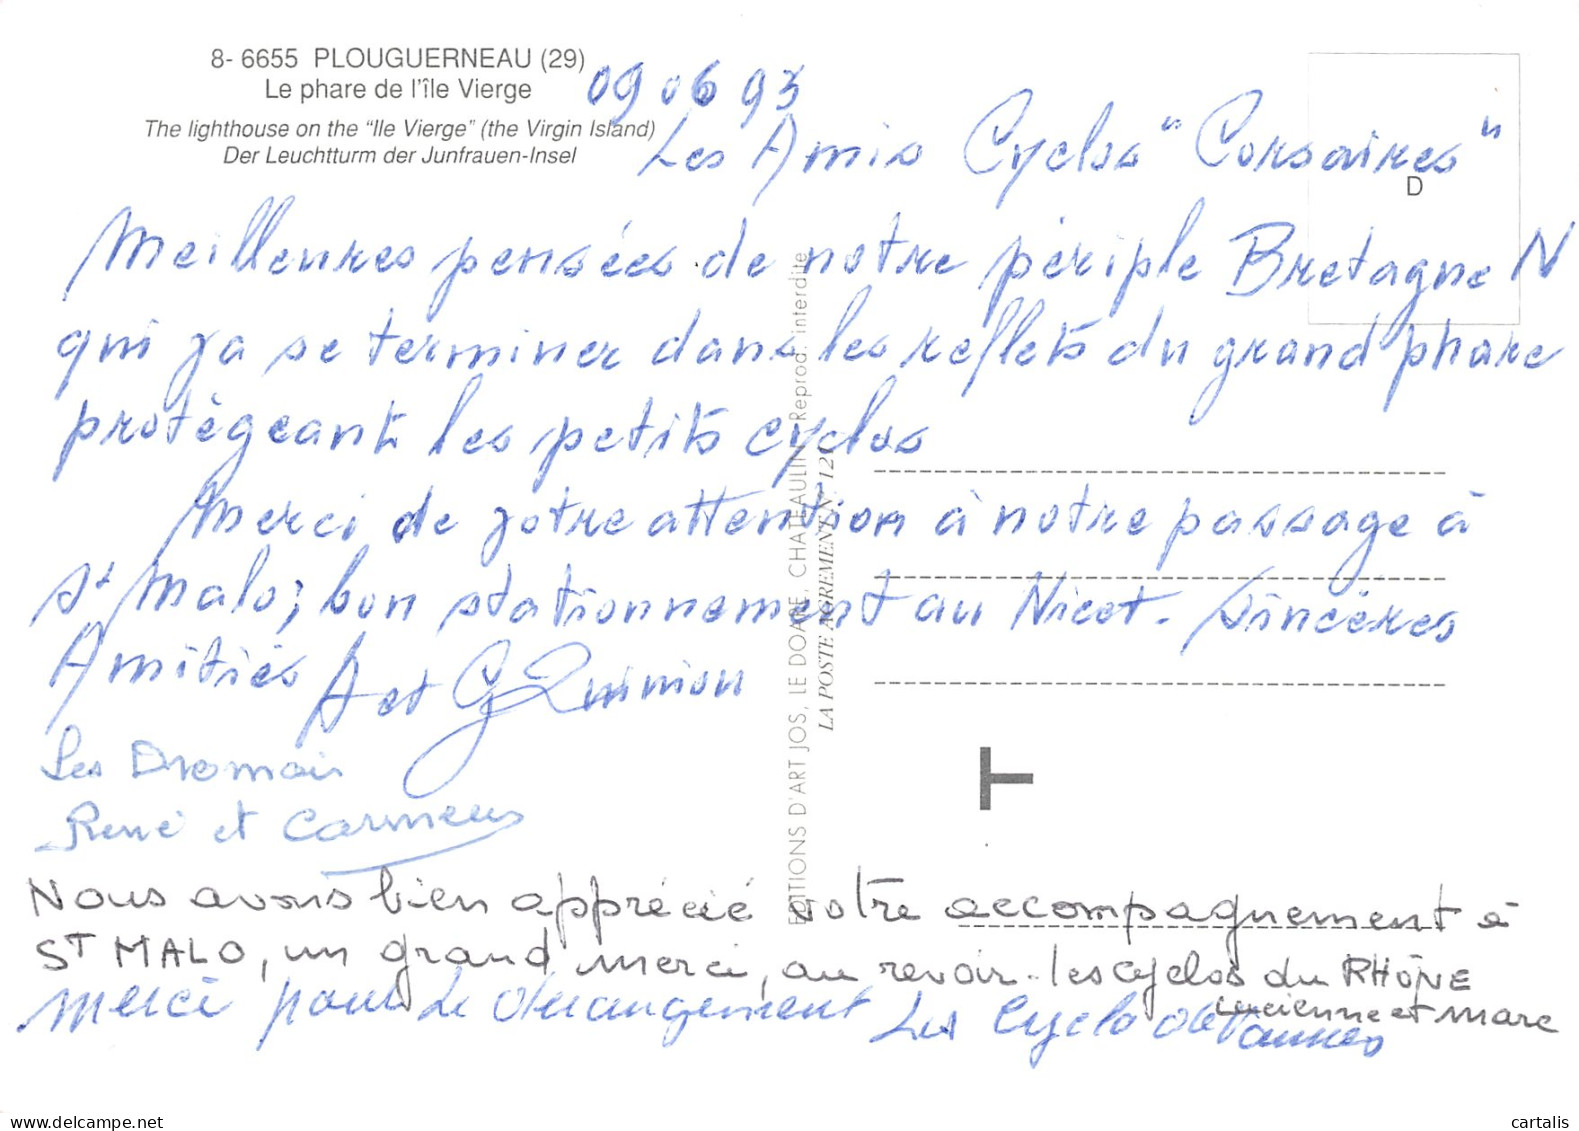 8- 6655 PLOUGUERNEAU (29)
Le phare de l'île Vierge
The lighthouse on the "Ile Vierge" (the Virgin Island)
Der Leuchtturm der Junfrauen-Insel
09 06 93
Les Amis Cyclos "Corsaires"
D
Meilleures pensées de notre périple Bretagne N
qui va se terminer dans les reflets du grand phare
protègeant les petits cyclos
Merci de votre attention à notre passage à
St Malo, bon stationnement au Nicet. Sincères
Amitiés A et G Quinion
Les Dromair
René et Carmen
Nous avons bien apprécié votre accompagnement à
ST MALO, un grand merci, au revoir. les cyclos du RHÔNE
Lucienne et Marc
Merci pour le dérangement Les Cyclo de Vannes
EDITIONS D'ART JOS, LE DOARE, CHATEAULIN Reprod. interdite
LA POSTE AGREMENT N° 121
cartalis.com